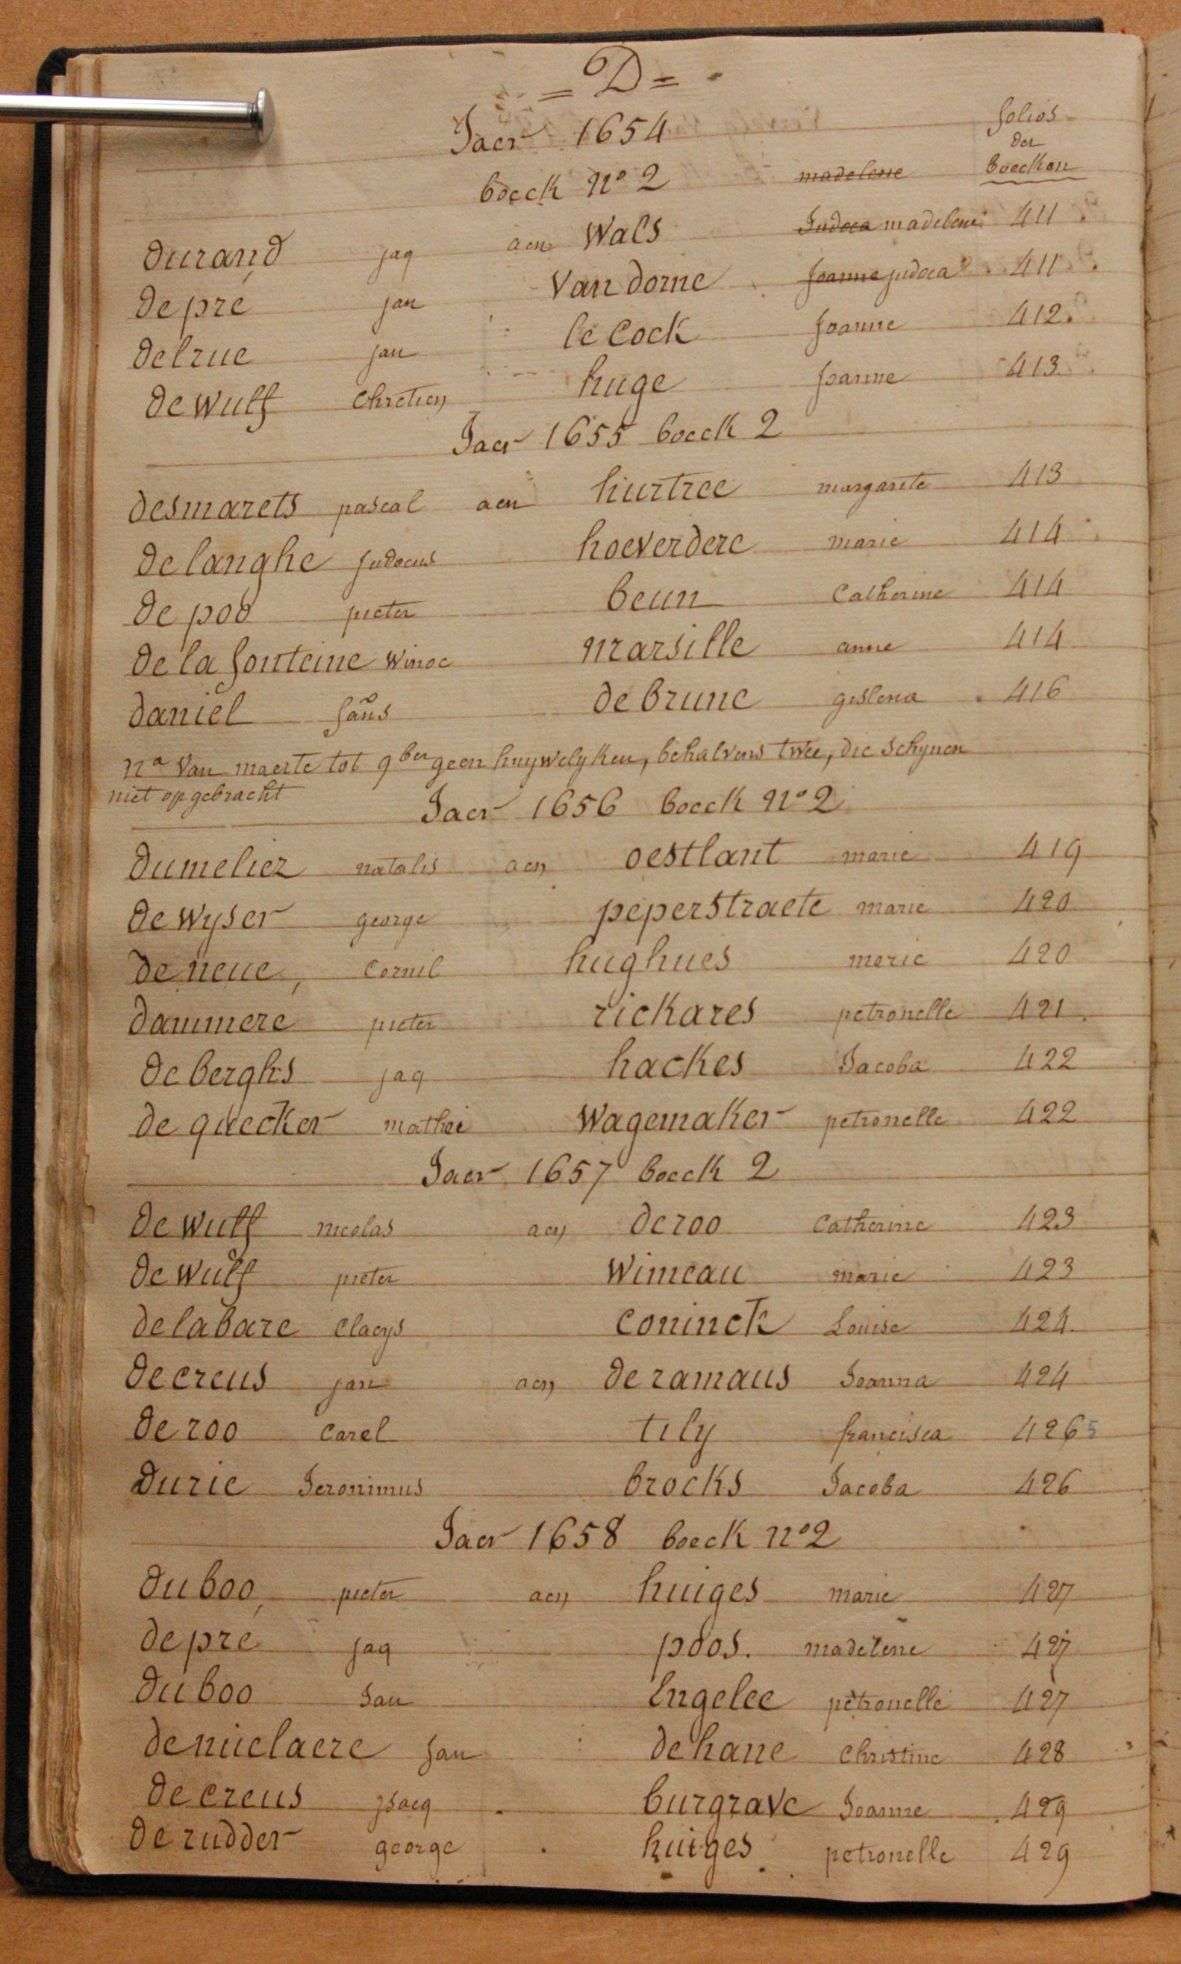 = D =
Jaer 1654
folios
der
boecken
boeck No 2
madelene
durand jaq aen Wals Judoca madelene 411
de pré jan Van dorne Joanne judoca 411
delrue jan le Cock Joanne 412
de Wulf Chretien huge Joanne 413
Jaer 1655 boeck 2
desmarets pascal aen hurtree margarite 413
de langhe Judocus hoeverdere marie 414
de poo pieter beun Catherine 414
de la fonteine Winoc marsille anne 414
daniel fãus de brune gislena 416
Na Van maerte tot 9ber geen huywelyken, behalvens twee, die schynen
niet opgebracht
Jaer 1656 boeck No 2
dumeliez natalis aen oestlant marie 419
de Wyser george peperstraete marie 420
de neue, Cornil hughues marie 420
dammere pieter rickares petronelle 421
de berghs jaq hackes Jacoba 422
de quecker mathei Wagemaker petronelle 422
Jaer 1657 boeck 2
de Wulf nicolas aen de roo Catherine 423
de Wulf pieter Wimeau marie 423
delabare Claeys coninck Louise 424
decreus jan aen de ramaus Joanna 424
de roo Carel tily francisca 426 5
durie Jeronimus brocks Jacoba 426
Jaer 1658 boeck no 2
du boo, pieter aen huiges marie 427
de pré jaq poos. madelene 427
du boo Jan Engelee petronelle 427
de muelaere Jan de hane Christine 428
de creus jsacq burgrave Joanne 429
de rudder george huiges petronelle 429